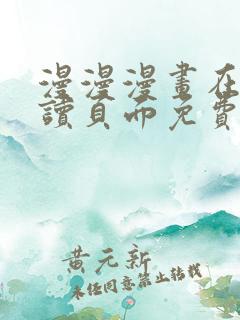 漫漫漫畫在
讀頁面免費
黃元新
未经同意禁止转载